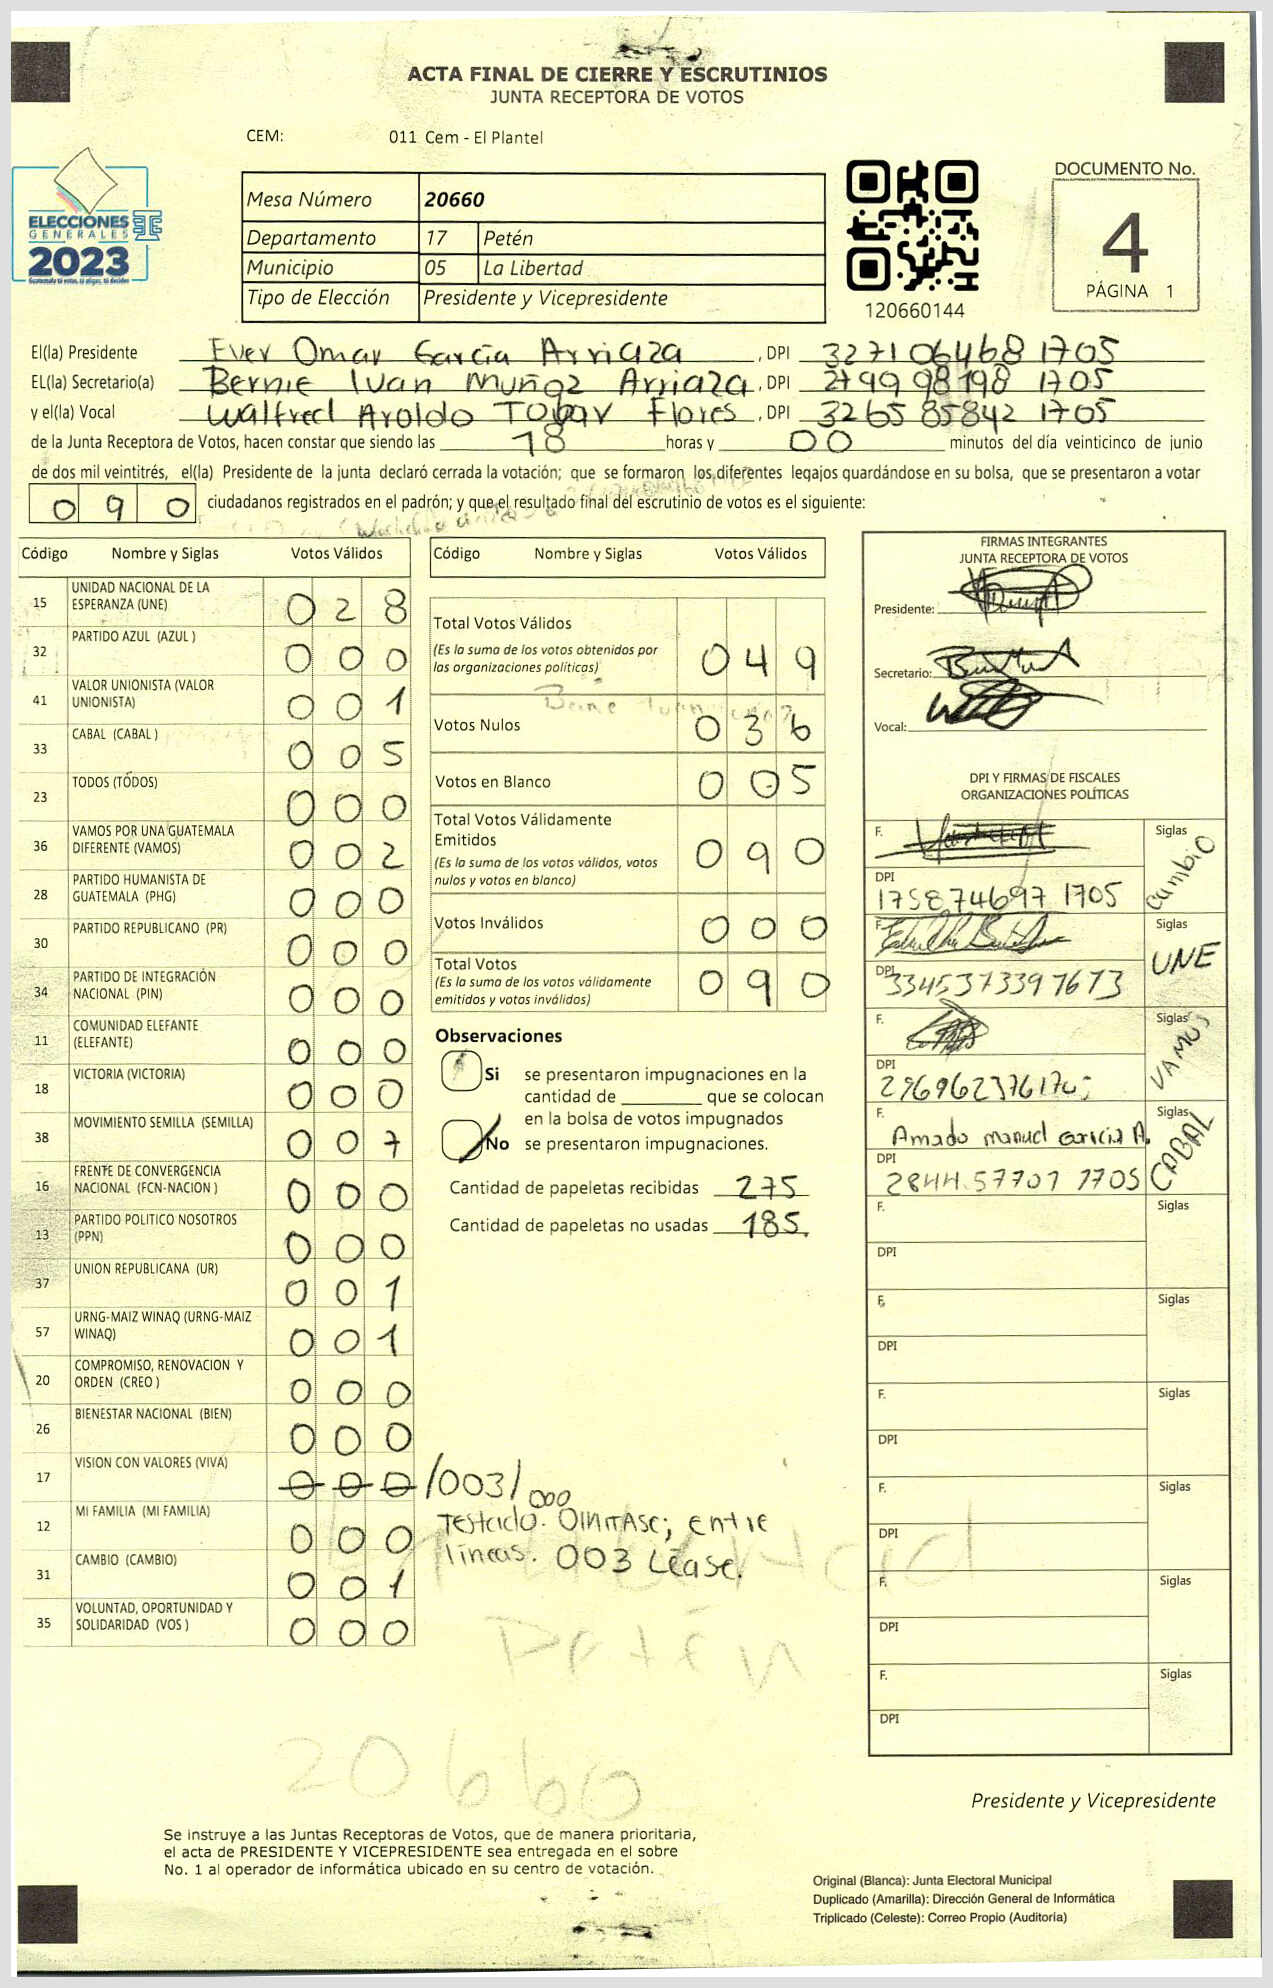 ACTA FINAL DE CIERRE Y ESCRUTINIOS
JUNTA RECEPTORA DE VOTOS
CEM: 011 Cem - El Plantel
ELECCIONES
GENERALES
2023
Mesa Número 20660
Departamento 17 Petén
Municipio 05 La Libertad
Tipo de Elección Presidente y Vicepresidente
120660144
DOCUMENTO No.
4
PÁGINA 1
El(la) Presidente Ever Omar García Arriaza, DPI 327106468 1705
EL(la) Secretario(a) Bernie Ivan Muñoz Arriaza, DPI 2799 98198 1705
y el(la) Vocal Walfred Aroldo Tobar Flores, DPI 3265 85842 1705
de la Junta Receptora de Votos, hacen constar que siendo las 18 horas y 00 minutos del día veinticinco de junio
de dos mil veintitrés, el(la) Presidente de la junta declaró cerrada la votación; que se formaron los diferentes legajos guardándose en su bolsa, que se presentaron a votar
090 ciudadanos registrados en el padrón; y que el resultado final del escrutinio de votos es el siguiente:
Código Nombre y Siglas Votos Válidos
15 UNIDAD NACIONAL DE LA ESPERANZA (UNE) 028
32 PARTIDO AZUL (AZUL ) 000
41 VALOR UNIONISTA (VALOR UNIONISTA) 001
33 CABAL (CABAL ) 005
23 TODOS (TODOS) 000
36 VAMOS POR UNA GUATEMALA DIFERENTE (VAMOS) 002
28 PARTIDO HUMANISTA DE GUATEMALA (PHG) 000
30 PARTIDO REPUBLICANO (PR) 000
34 PARTIDO DE INTEGRACIÓN NACIONAL (PIN) 000
11 COMUNIDAD ELEFANTE (ELEFANTE) 000
18 VICTORIA (VICTORIA) 000
38 MOVIMIENTO SEMILLA (SEMILLA) 007
16 FRENTE DE CONVERGENCIA NACIONAL (FCN-NACION ) 000
13 PARTIDO POLITICO NOSOTROS (PPN) 000
37 UNION REPUBLICANA (UR) 001
57 URNG-MAIZ WINAQ (URNG-MAIZ WINAQ) 001
20 COMPROMISO, RENOVACION Y ORDEN (CREO ) 000
26 BIENESTAR NACIONAL (BIEN) 000
17 VISION CON VALORES (VIVA) 000 /003/ 000
12 MI FAMILIA (MI FAMILIA) 000
31 CAMBIO (CAMBIO) 001
35 VOLUNTAD, OPORTUNIDAD Y SOLIDARIDAD (VOS ) 000
Código Nombre y Siglas Votos Válidos
Total Votos Válidos 049
(Es la suma de los votos obtenidos por
las organizaciones políticas)
Votos Nulos 036
Votos en Blanco 005
Total Votos Válidamente
Emitidos 090
(Es la suma de los votos válidos, votos
nulos y votos en blanco)
Votos Inválidos 000
Total Votos 090
(Es la suma de los votos válidamente
emitidos y votos inválidos)
Observaciones
Si se presentaron impugnaciones en la
cantidad de ________ que se colocan
en la bolsa de votos impugnados
No se presentaron impugnaciones.
Cantidad de papeletas recibidas 275
Cantidad de papeletas no usadas 185.
Testado. OMITASE; entre
lineas. 003 Léase.
Petén
20660
FIRMAS INTEGRANTES
JUNTA RECEPTORA DE VOTOS
Presidente:
Secretario:
Vocal:
DPI Y FIRMAS DE FISCALES
ORGANIZACIONES POLÍTICAS
F. Siglas cambio
DPI 175874697 1705
F. Siglas UNE
DPI 3345373397673
F. Siglas VAMOS
DPI
F. Amado manuel Garcia A. Siglas CABAL
DPI 2844.57707 1705
F. Siglas
DPI
F. Siglas
DPI
F. Siglas
DPI
F. Siglas
DPI
F. Siglas
DPI
F. Siglas
DPI
Presidente y Vicepresidente
Se instruye a las Juntas Receptoras de Votos, que de manera prioritaria,
el acta de PRESIDENTE Y VICEPRESIDENTE sea entregada en el sobre
No. 1 al operador de informática ubicado en su centro de votación.
Original (Blanca): Junta Electoral Municipal
Duplicado (Amarilla): Dirección General de Informática
Triplicado (Celeste): Correo Propio (Auditoría)